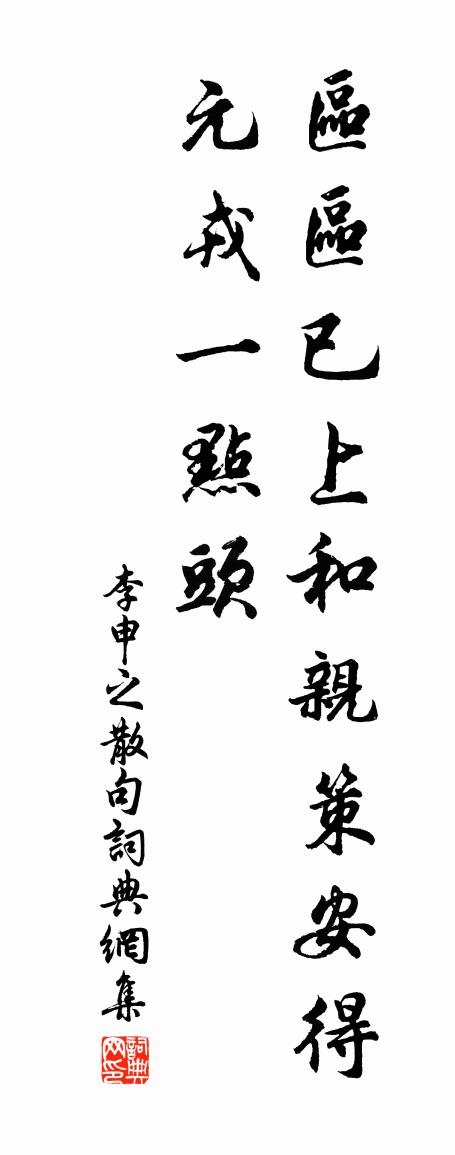 區區已上和親策安得
元戎一點頭
李申之散句詞典網集
詞典网印